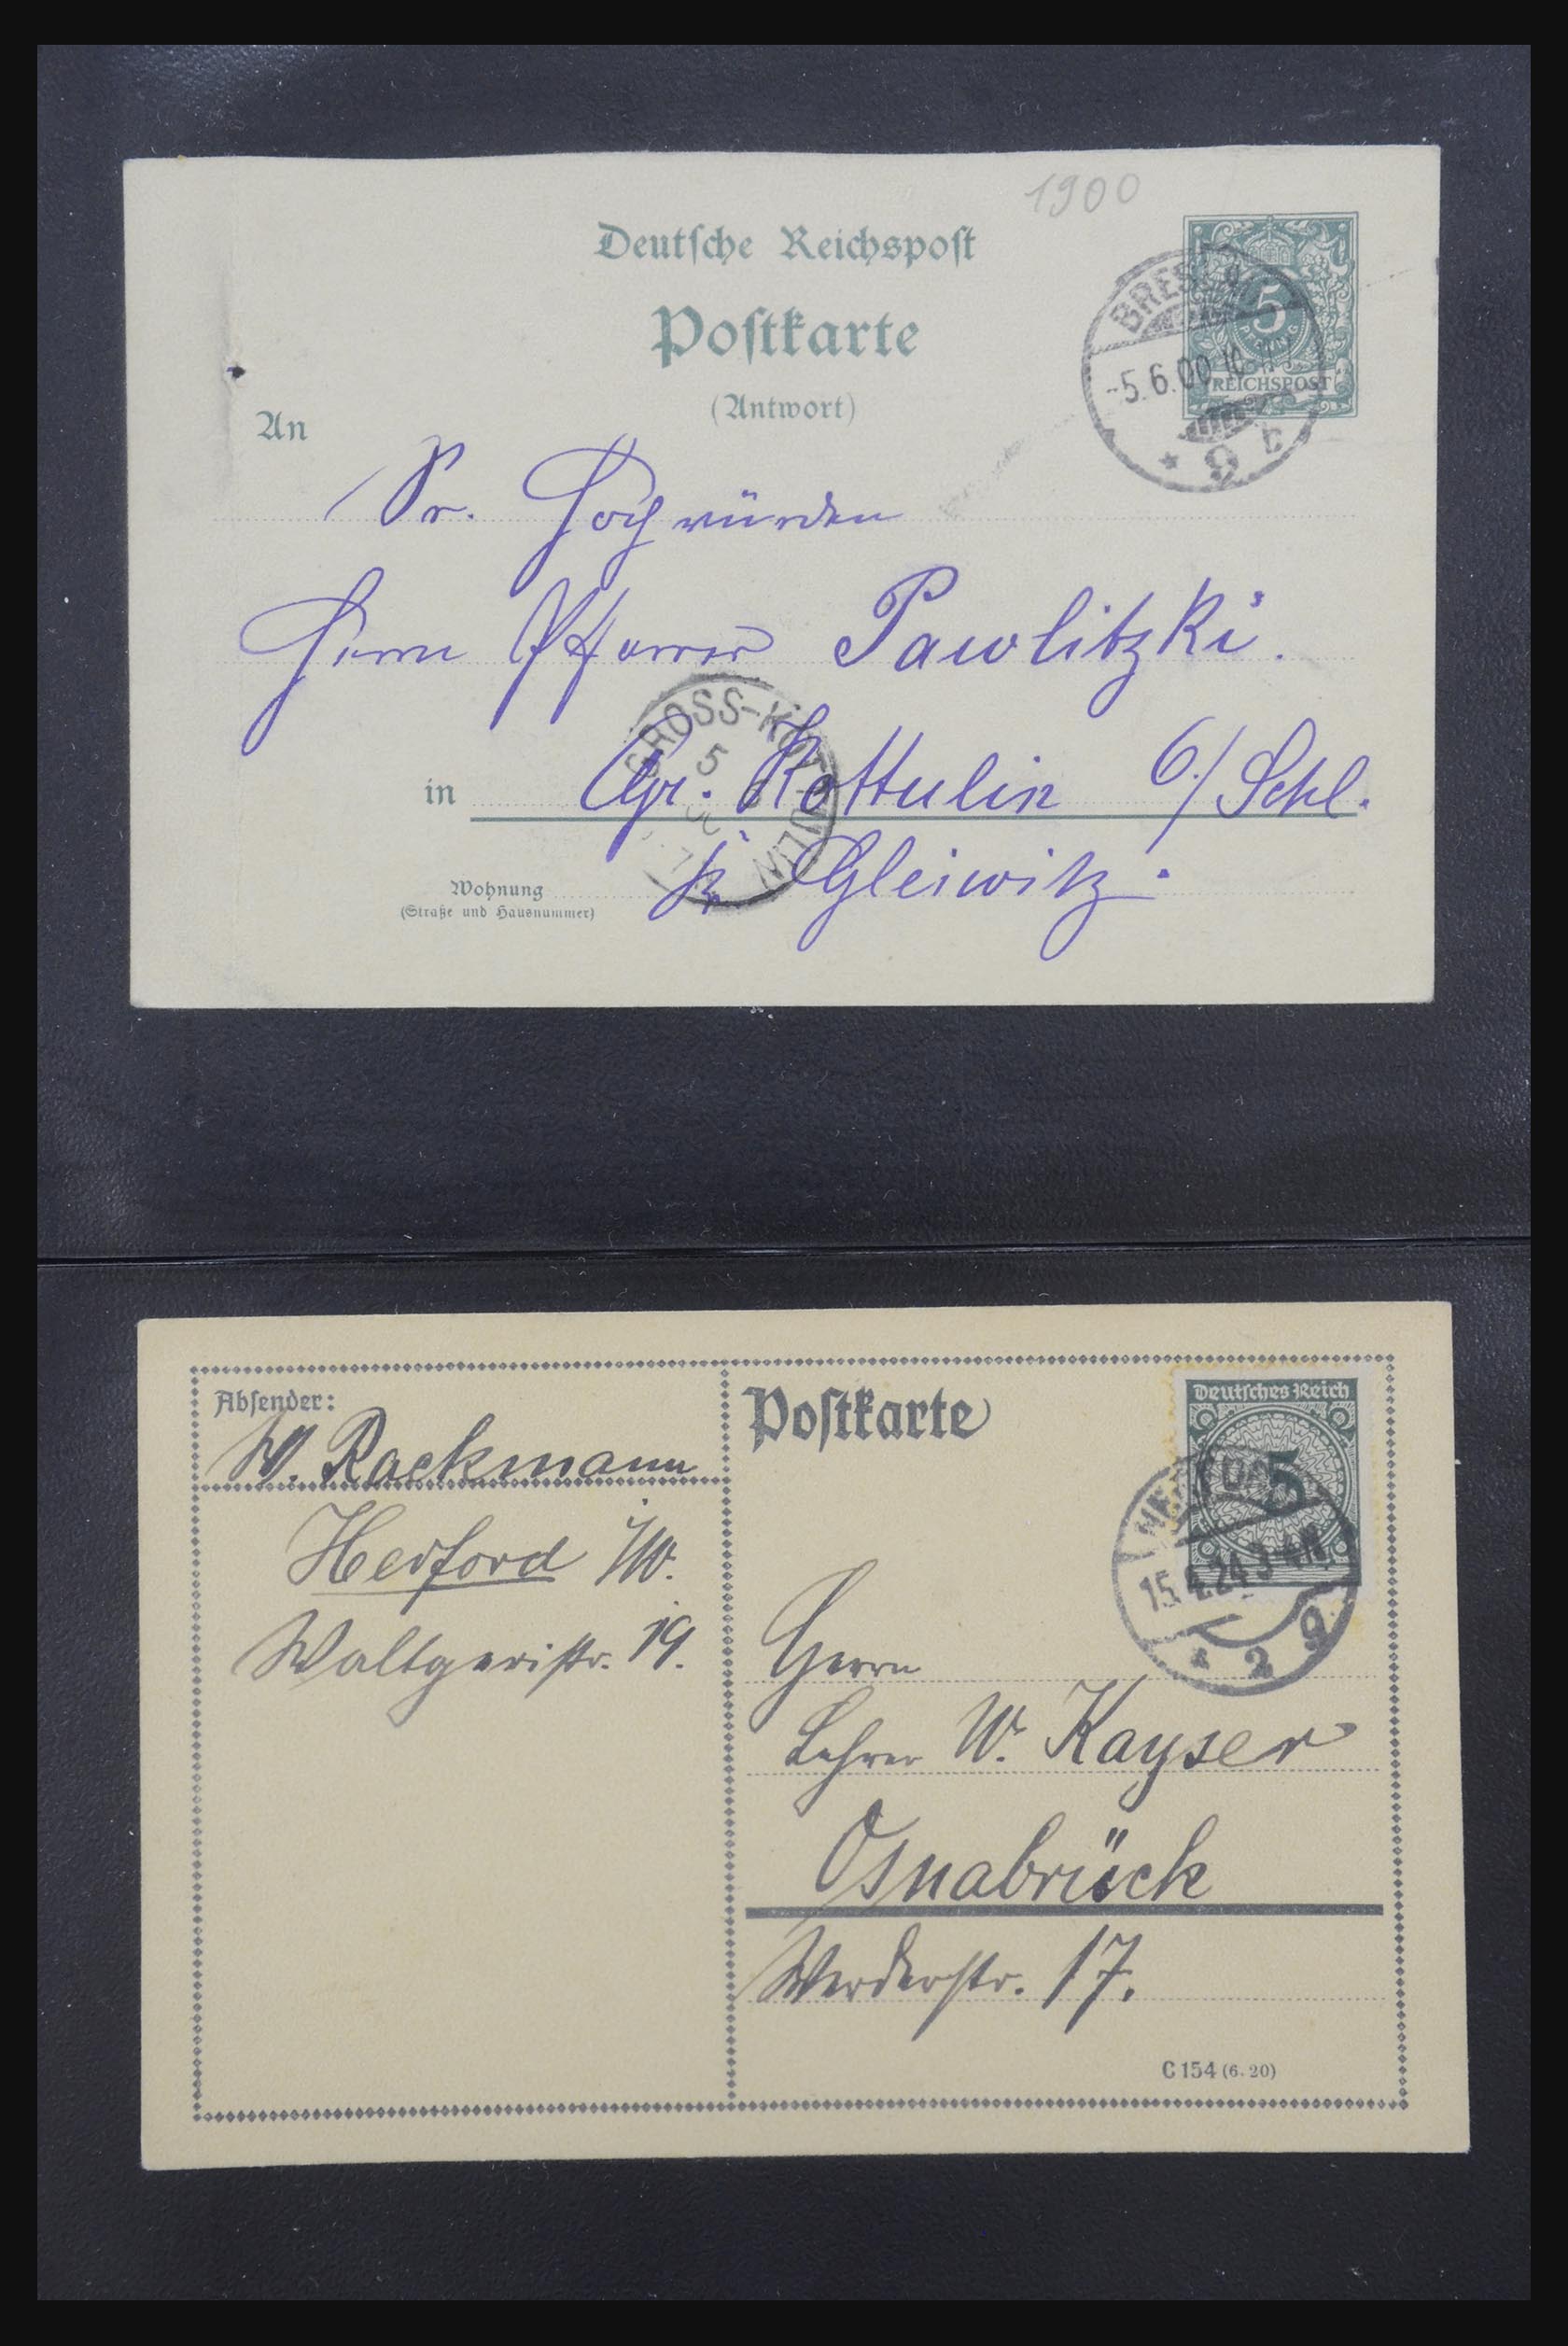 1900
Deutsche Reichspost
Postkarte
(Antwort)
5
PFENNIG
REICHSPOST
BRESLA
-5.6.00 10-11
* 9 c
An
Sr. Hochwürden
Herrn Pfarrer Pawlitzki.
GROSS-KOTTULIN
5
in Gr. Kottulin O./Schl.
Wohnung
(Straße und Hausnummer)
b. Gleiwitz.
Absender:
W. Rackmann
Herford i/W.
Waltgeristr. 19.
Postkarte
Deutsches Reich
5
HERFORD
15.4.24 3-4N
* 2 g
Herrn
Lehrer W. Kayser
Osnabrück
Werderstr. 17.
C 154 (6. 20)